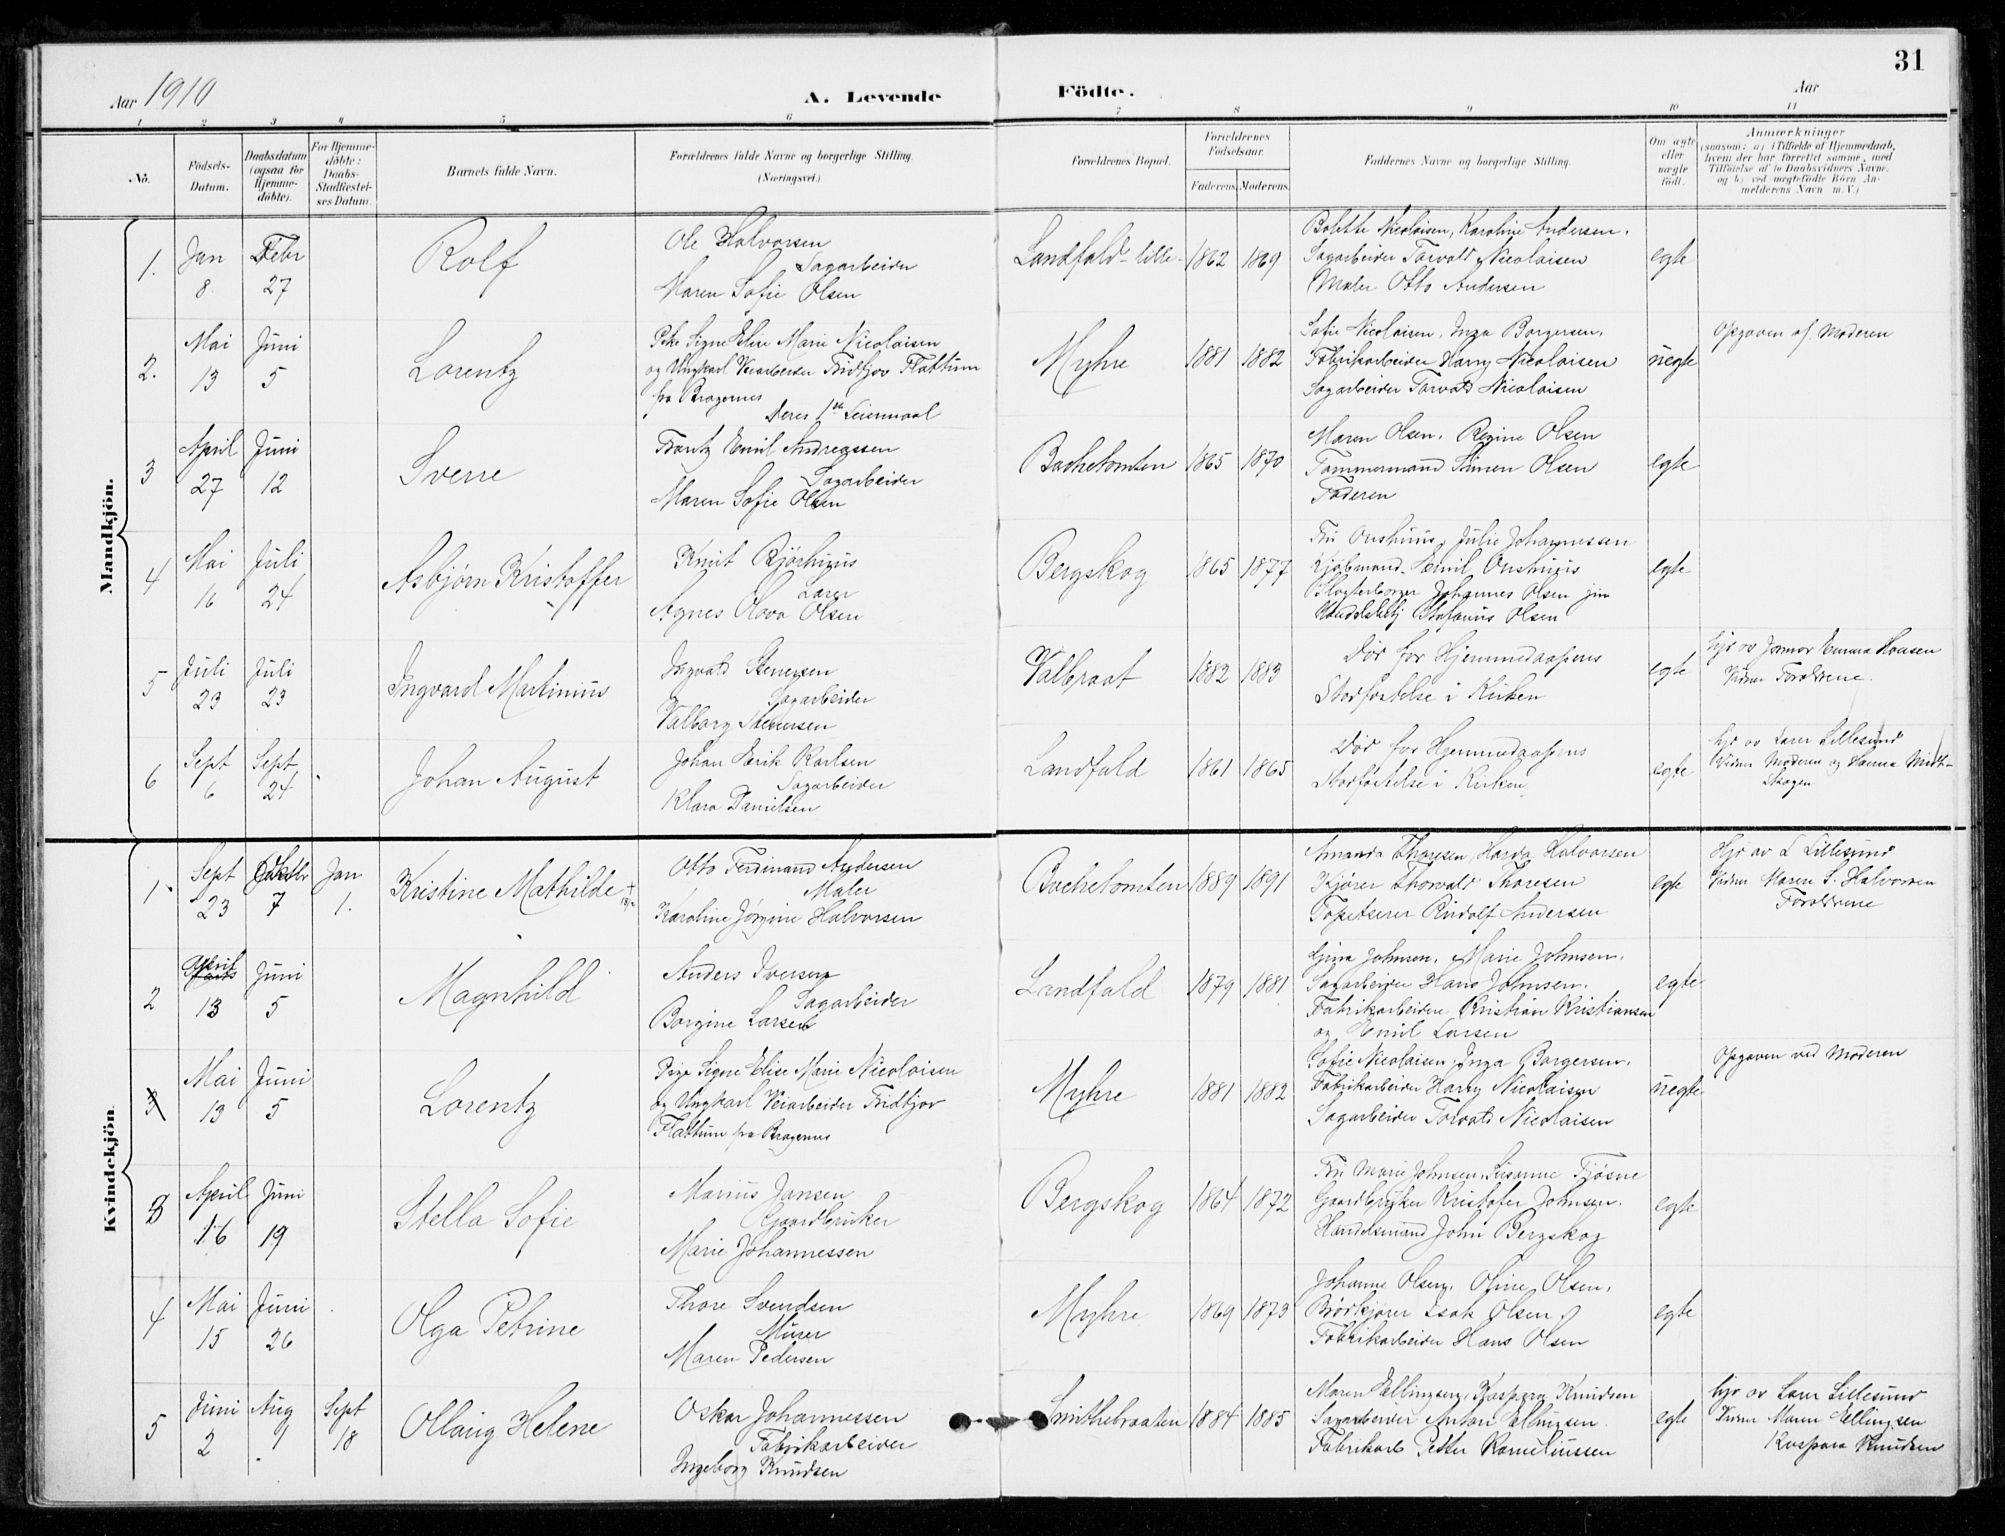 31
Aar 1910 A. Levende Födte. Aar
1 2 3 4 5 6 7 8 9 10 11
No. Födsels-Datum. Daabsdatum (ogsaa for Hjemmedöbte). For Hjemmedöbte: Daabs-Stadfæstelses Datum. Barnets fulde Navn. Forældrenes fulde Navne og borgerlige Stilling. (Næringsvei.) Forældrenes Bopæl. Forældrenes Födselsaar. Faderens. Moderens. Faddernes Navne og borgerlige Stilling. Om ægte eller uægte födt. Anmærkninger (saasom: a) i Tilfælde af Hjemmedaab, hvem der har forrettet samme, med Tilföielse af to Daabsvidners Navne, og b) ved uægtefödte Börn Anmelderens Navn m. V.)
Mandkjön.
1. Jan 8. Febr 27 Rolf
Ole Halvorsen
Sagarbeider
Maren Sofie Olsen
Landfald-lille 1862 1869
Bolette Nicolaisen, Karoline Andersen.
Sagarbeider Torvald Nicolaisen
Maler Otto Andersen
egte
2. Mai 13 Juni 5 Lorentz
Pike Signe Elise Marie Nicolaisen
og Ungkarl Veiarbeider Fridtjov Flattum
fra Bragernes
Deres 1ste Leiermaal
Myhre 1881 1882
Sofie Nicolaisen, Inga Borgersen.
Fabrikarbeider Harry Nicolaisen
Sagarbeider Torvald Nicolaisen
uegte
Opgaven af Moderen
3 April 27 Juni 12 Sverre
Frantz Emil Andreassen
Sagarbeider
Maren Sofie Olsen
Bachetomten 1865 1870
Maren Olsen, Regine Olsen
Tømmermand Simen Olsen
Faderen
egte
4 Mai 16 Juli 24 Asbjørn Kristoffer
Knut Bjørhuus
Lærer
Agnes Olava Olsen
Bergskog 1865 1877
Fru Onshuus, Julie Johannessen
Kjøbmand Emil Onshuus
Johannes Olsen jun
Stefanus Olsen
egte
5 Juli 23 Juli 23 Ingvard Martinius
Ingvald Stenersen
Sagarbeider
Valborg Stenersen
Valbraat 1882 1883
Død før Hjemmedaapens
Stadfæstelse i Kirken
egte
hjd av Jormor Emma Hansen
Vidner Forældrene.
6 Sept 6 Sept 24 Johan August
Johan Henrik Karlsen
Sagarbeider
Klara Danielsen
Landfald 1861 1865
Død før Hjemmedaapens
Stadfæstelse i Kirken
egte
hjd av Lærer Lillesund
Vidner Moderen og Hanna Midtskogen
Kvindekjön.
1. Sept 23 Oktbr 7 Jan 1. Kristine Mathilde
Otto Ferdinand Andersen
Maler
Karoline Jørgine Halvorsen
Bachetomten 1889 1891
Amanda Thoresen, Harda Halvorsen
Kjører Thorvald Thoresen
Tapetserer Rudolf Andersen
egte
Hjd av L Lillesund
Vidner Maren S. Halvorsen
Forældrene
2 April 13 Juni 5 Magnhild
Anders Iversen
Sagarbeider
Borgine Larsen
Landfald 1879 1881
Gina Johnsen, Marie Johnsen.
Sagarbeider Hans Johnsen.
Fabrikarbeidere Kristian Kristiansen
og Emil Larsen
egte
3 Mai 13 Juni 5 Lorentz
Pige Signe Elise Marie Nicolaisen
og Ungkarl Veiarbeider Fridtjov
Flattum fra Bragernes
Myhre 1881 1882
Sofie Nicolaisen, Inga Borgersen.
Fabrikarbeider Harry Nicolaisen
Sagarbeider Torvald Nicolaisen
uegte
Opgaven ved Moderen
3 April 16 Juni 19 Stella Sofie
Marius Jansen
Gaardbruker
Marie Johannessen
Bergskog 1864 1872
Fru Marie Johnsen, Susanne Fjøsne
Gaardbruker Kristofer Johnsen.
Handelsmand John Bergskog
egte
4 Mai 15 Juni 26 Olga Petrine
Thore Svendsen
Murer
Maren Pedersen
Myhre 1869 1873
Johanne Olsen, Oline Olsen.
Isak Olsen,
Fabrikarbeider Hans Olsen
egte
5 Juni 2 Aug 1 Sept 18 Ollaug Helene
Oskar Johannessen
Fabrikarbeider
Ingeborg Knudsen
Smithebraaten 1884 1885
Maren Ellingsen, Kaspara Knudsen
Sagarbeider Anton Ellingsen.
Fabrikarb Petter Korneliussen
egte
hjd av Lærer Lillesund
Vidner Maren Ellingsen
Kaspara Knudsen